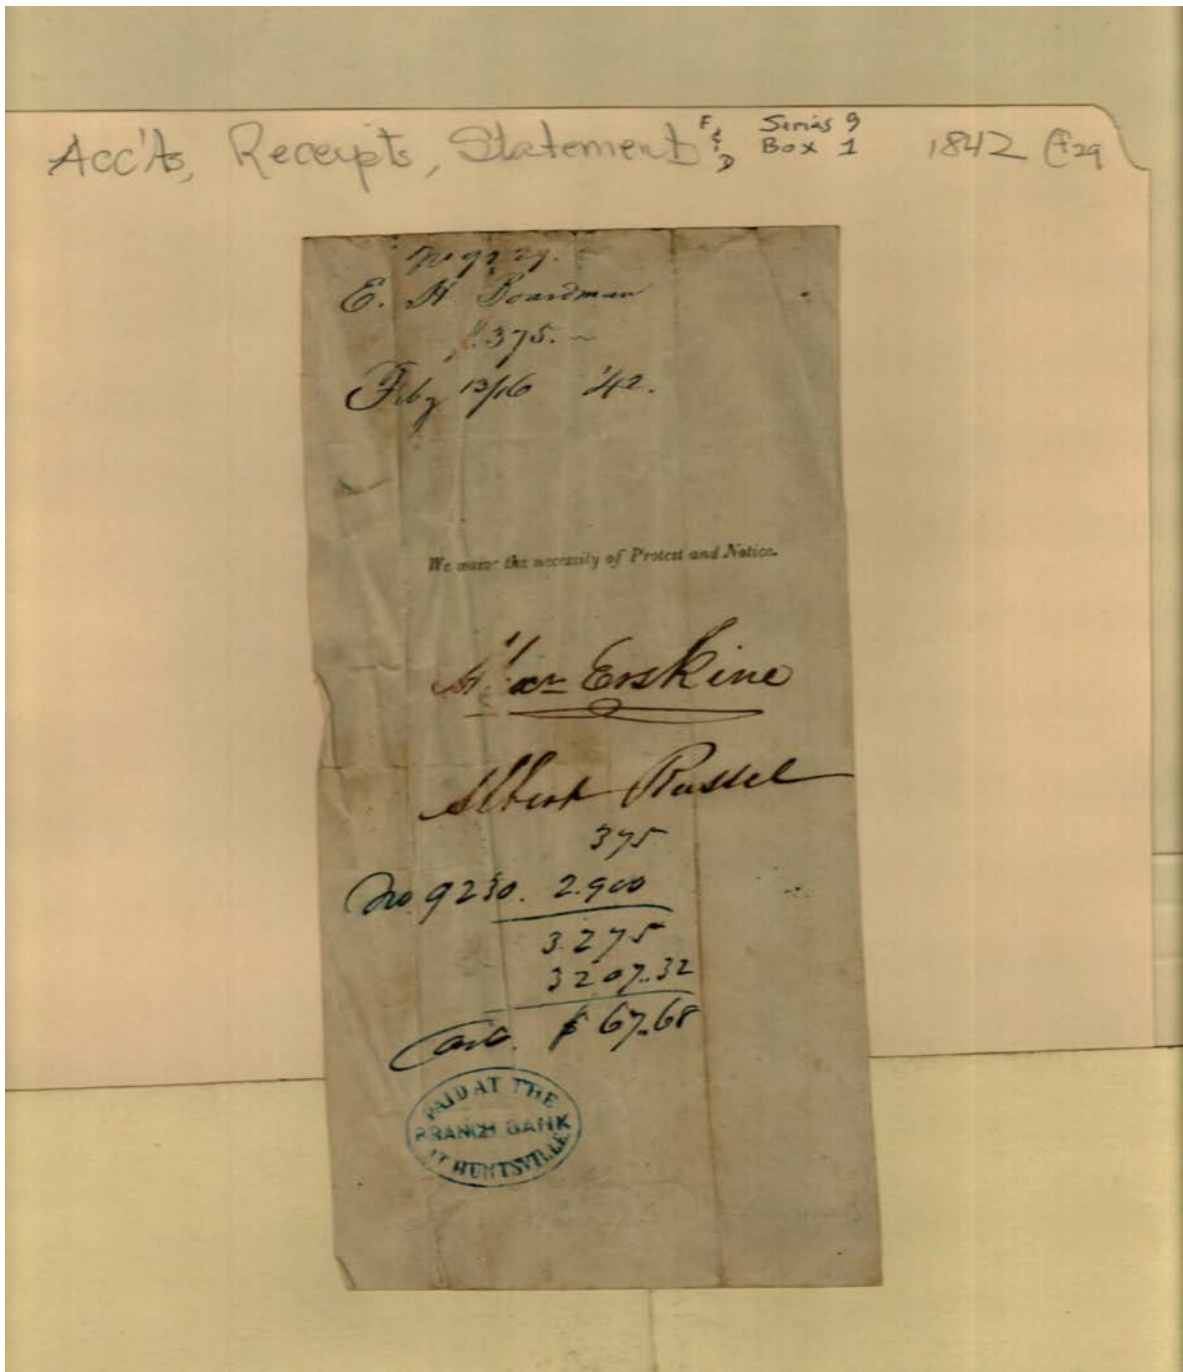 Acc'ts, Receipts, Statements F & D Series 9 Box 1 1842 F29
No 9229.
E. H Boardman
$375. ~
Feby 13/16 '42.
We waive the necessity of Protest and Notice.
Erskine
Albert Russel
375
No. 9230. 2.900
3.275
3207.32
$ 67.68
PAID AT THE
BRANCH BANK
AT HUNTSVILLE